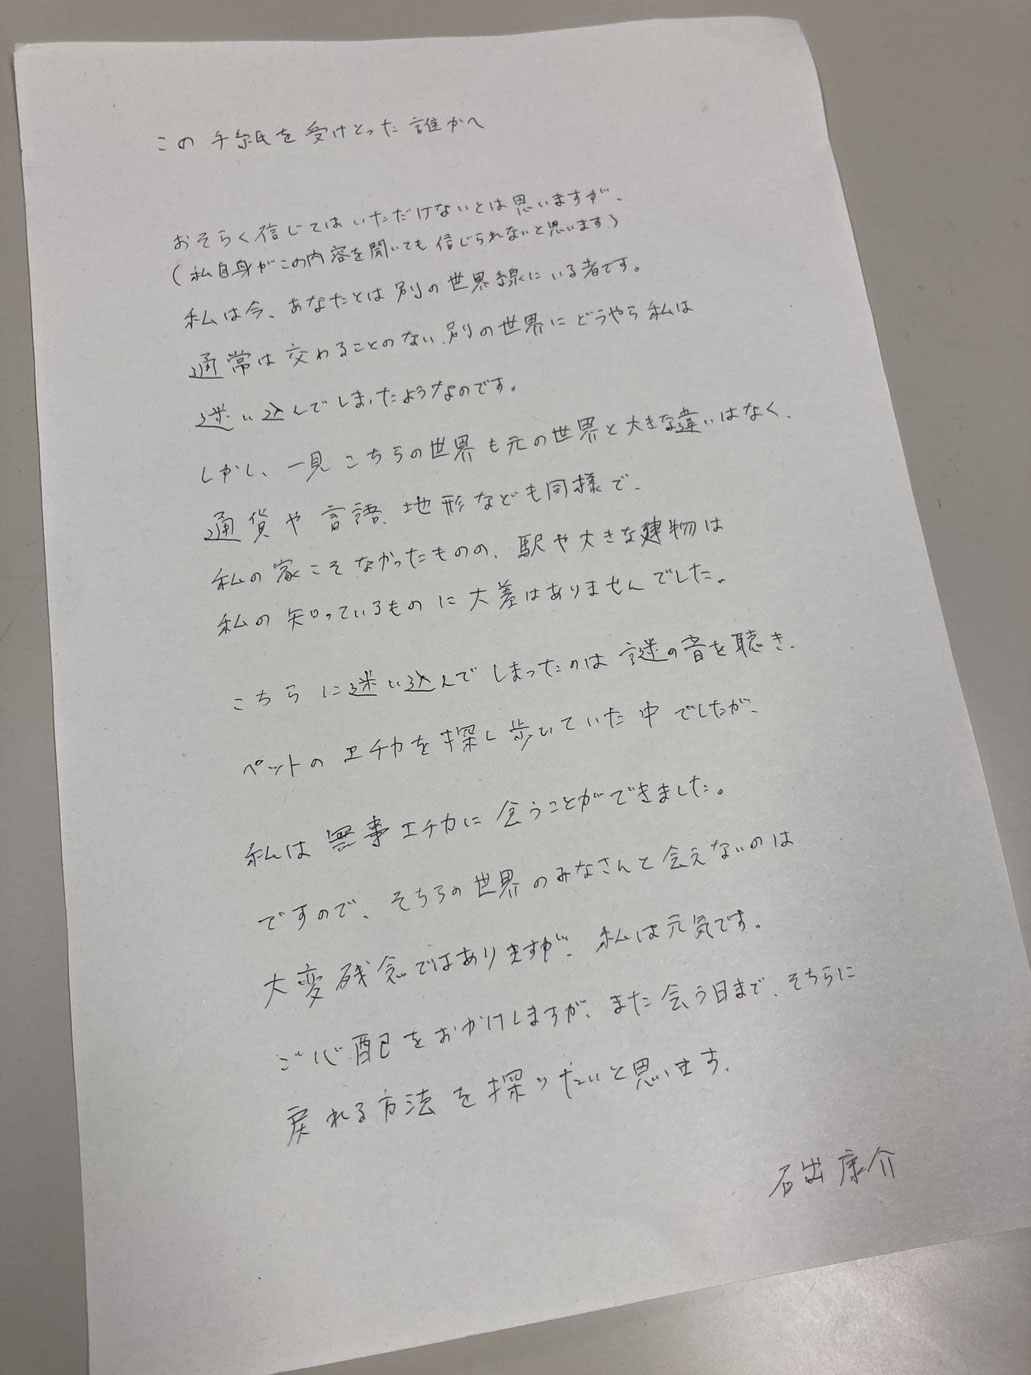 この手紙を受けとった誰かへ
おそらく信じてはいただけないとは思いますが、
(私自身がこの内容を聞いても信じられないと思います)
私は今、あなたとは別の世界線にいる者です。
通常は交わることのない別の世界にどうやら私は
迷い込んでしまったようなのです。
しかし、一見こちらの世界も元の世界と大きな違いはなく、
通貨や言語、地形なども同様で、
私の家こそなかったものの、駅や大きな建物は
私の知っているものに大差はありませんでした。
こちらに迷い込んでしまったのは謎の音を聴き、
ペットのエチカを探し歩いていた中でしたが、
私は無事エチカに会うことができました。
ですので、そちらの世界のみなさんと会えないのは
大変残念ではありますが、私は元気です。
ご心配をおかけしますが、また会う日まで、そちらに
戻れる方法を探りたいと思います。
石出康介